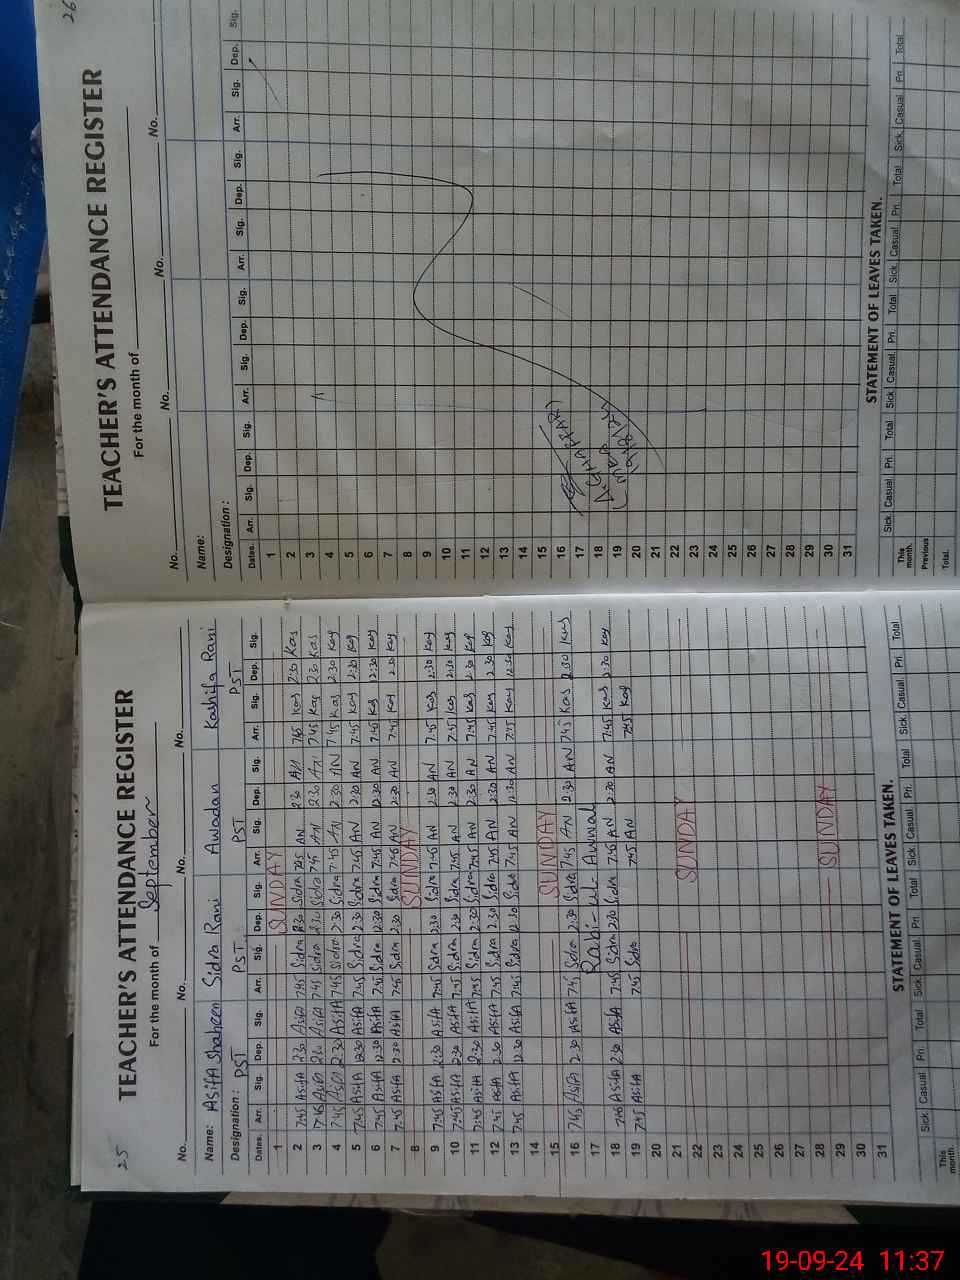 25
TEACHER'S ATTENDANCE REGISTER
For the month of September
No. No. No. No.
Name: Asifa Shaheen Sidra Rani Awadan Kashifa Rani
Designation: PST PST PST PST
Dates. Arr. Sig. Dep. Sig. Arr. Sig. Dep. Sig. Arr. Sig. Dep. Sig. Arr. Sig. Dep. Sig.
1 SUNDAY
2 7:45 Asifa 2:30 Asifa 7:45 Sidra 2:30 Sidra 7:45 AN 2:30 AN 7:45 Kas 2:30 Kas
3 7:45 Asifa 2:30 Asifa 7:45 Sidra 2:30 Sidra 7:45 AN 2:30 AN 7:45 Kas 2:30 Kas
4 7:45 Asifa 2:30 Asifa 7:45 Sidra 2:30 Sidra 7:45 AN 2:30 AN 7:45 Kas 2:30 Kas
5 7:45 Asifa 2:30 Asifa 7:45 Sidra 2:30 Sidra 7:45 AN 2:30 AN 7:45 Kas 2:30 Kas
6 7:45 Asifa 12:30 Asifa 7:45 Sidra 12:30 Sidra 7:45 AN 12:30 AN 7:45 Kas 12:30 Kas
7 7:45 Asifa 2:30 Asifa 7:45 Sidra 2:30 Sidra 7:45 AN 2:30 AN 7:45 Kas 2:30 Kas
8 SUNDAY
9 7:45 Asifa 2:30 Asifa 7:45 Sidra 2:30 Sidra 7:45 AN 2:30 AN 7:45 Kas 2:30 Kas
10 7:45 Asifa 2:30 Asifa 7:45 Sidra 2:30 Sidra 7:45 AN 2:30 AN 7:45 Kas 2:30 Kas
11 7:45 Asifa 2:30 Asifa 7:45 Sidra 2:30 Sidra 7:45 AN 2:30 AN 7:45 Kas 2:30 Kas
12 7:45 Asifa 2:30 Asifa 7:45 Sidra 2:30 Sidra 7:45 AN 2:30 AN 7:45 Kas 2:30 Kas
13 7:45 Asifa 12:30 Asifa 7:45 Sidra 12:30 Sidra 7:45 AN 12:30 AN 7:45 Kas 12:30 Kas
14
15 SUNDAY
16 7:45 Asifa 2:30 Asifa 7:45 Sidra 2:30 Sidra 7:45 AN 2:30 AN 7:45 Kas 2:30 Kas
17 Rabi-ul-Awwal
18 7:45 Asifa 2:30 Asifa 7:45 Sidra 2:30 Sidra 7:45 AN 2:30 AN 7:45 Kas 2:30 Kas
19 7:45 Asifa 7:45 Sidra 7:45 AN 7:45 Kas
20
21
22 SUNDAY
23
24
25
26
27
28
29 SUNDAY
30
31
STATEMENT OF LEAVES TAKEN.
Sick Casual Pri. Total Sick. Casual. Pri. Total Sick. Casual. Pri. Total Sick. Casual. Pri. Total
This month.
26
TEACHER'S ATTENDANCE REGISTER
For the month of
No. No. No. No.
Name:
Designation :
Dates. Arr. Sig. Dep. Sig. Arr. Sig. Dep. Sig. Arr. Sig. Dep. Sig. Arr. Sig. Dep. Sig.
1
2
3
4
5
6
7
8
9
10
11
12
13
14
15
16
17
18
19
20
21
22
23
24
25
26
27
28
29
30
31
STATEMENT OF LEAVES TAKEN.
Sick. Casual Pri. Total Sick. Casual. Pri. Total Sick. Casual. Pri. Total Sick. Casual. Pri. Total
This month.
Previous
Total.
19-09-24 11:37